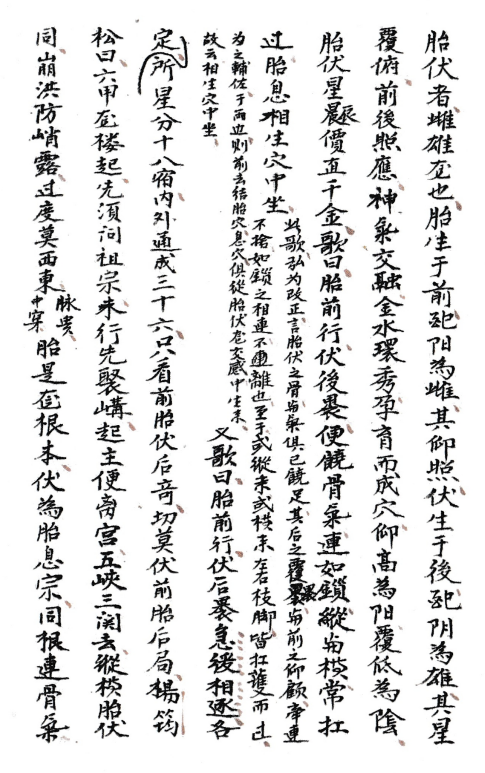 胎伏者雌雄龙也胎生于前配阳为雌其仰照伏生于後配阴为雄其星
覆俯前後照應神氣交融金水環秀孕育而成穴仰高為阳覆低為陰
胎伏星辰價直千金歌曰胎前行伏後裹便饒骨氣連如鎖縱与横常扛
过胎息相生穴中坐
此歌弘为改正言胎伏之骨与氣俱已饒足其后之覆裹与前之仰顧牵連
不捨如鎖之相連不離也至于或縱来或横来左右枝脚皆扛護而过
为之輔佐于两边则前去结胎穴息穴俱從胎伏龙交感中生来
故云相生穴中坐
又歌曰胎前行伏后裹急後相逐各
定所星分十八宿内外通成三十六只看前胎伏后奇切莫伏前胎后局楊筠
松曰六甲龙楼起先須问祖宗来行先聚講起主便离宫五峡三関去縱横胎伏
同崩洪防峭露过度莫西東
脉贵
中穿
胎是龙根本伏為胎息宗同根連骨氣